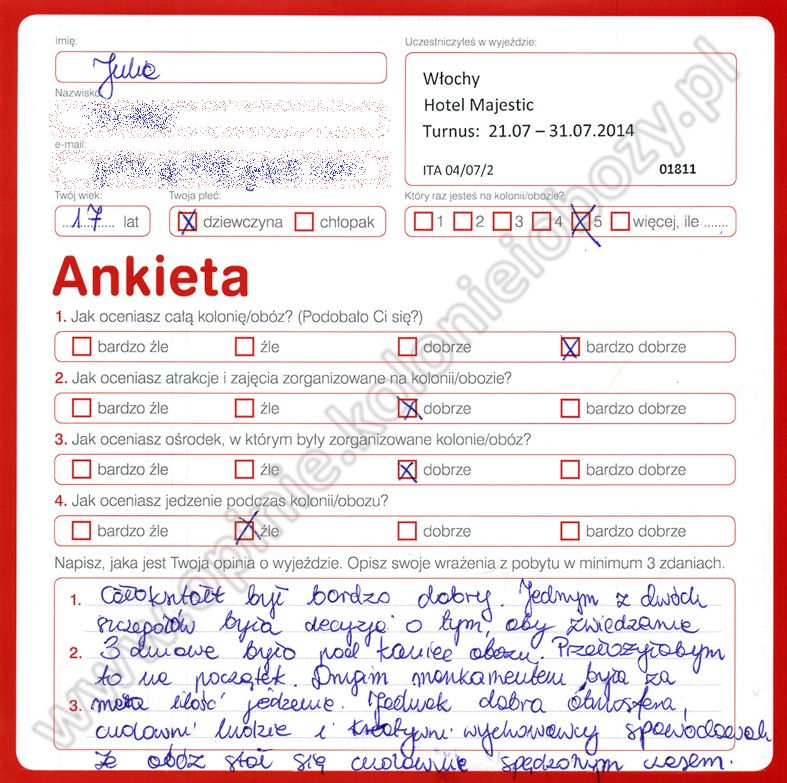 Imię:
Julia
Nazwisko
e-mail:
Uczestniczyłeś w wyjeździe:
Włochy
Hotel Majestic
Turnus: 21.07 – 31.07.2014
ITA 04/07/2 01811
Twój wiek: Twoja płeć: Który raz jesteś na kolonii/obozie?
17 lat dziewczyna chłopak 1 2 3 4 5 więcej, ile .......
Ankieta
1. Jak oceniasz całą kolonię/obóz? (Podobało Ci się?)
bardzo źle źle dobrze bardzo dobrze
2. Jak oceniasz atrakcje i zajęcia zorganizowane na kolonii/obozie?
bardzo źle źle dobrze bardzo dobrze
3. Jak oceniasz ośrodek, w którym były zorganizowane kolonie/obóz?
bardzo źle źle dobrze bardzo dobrze
4. Jak oceniasz jedzenie podczas kolonii/obozu?
bardzo źle źle dobrze bardzo dobrze
Napisz, jaka jest Twoja opinia o wyjeździe. Opisz swoje wrażenia z pobytu w minimum 3 zdaniach.
1. Całokształt był bardzo dobry. Jednym z dwóch
szczegółów była decyzja o tym, aby zwiedzanie
2. 3 dniowe było pod koniec obozu. Przełożyłabym
to na początek. Drugim mankamentem była za
3. mała ilość jedzenia. Jednak dobra atmosfera,
cudowni ludzie i kreatywni wychowawcy spowodowali
że obóz stał się cudownie spędzonym czasem.
www.opinie.kolonieiobozy.pl